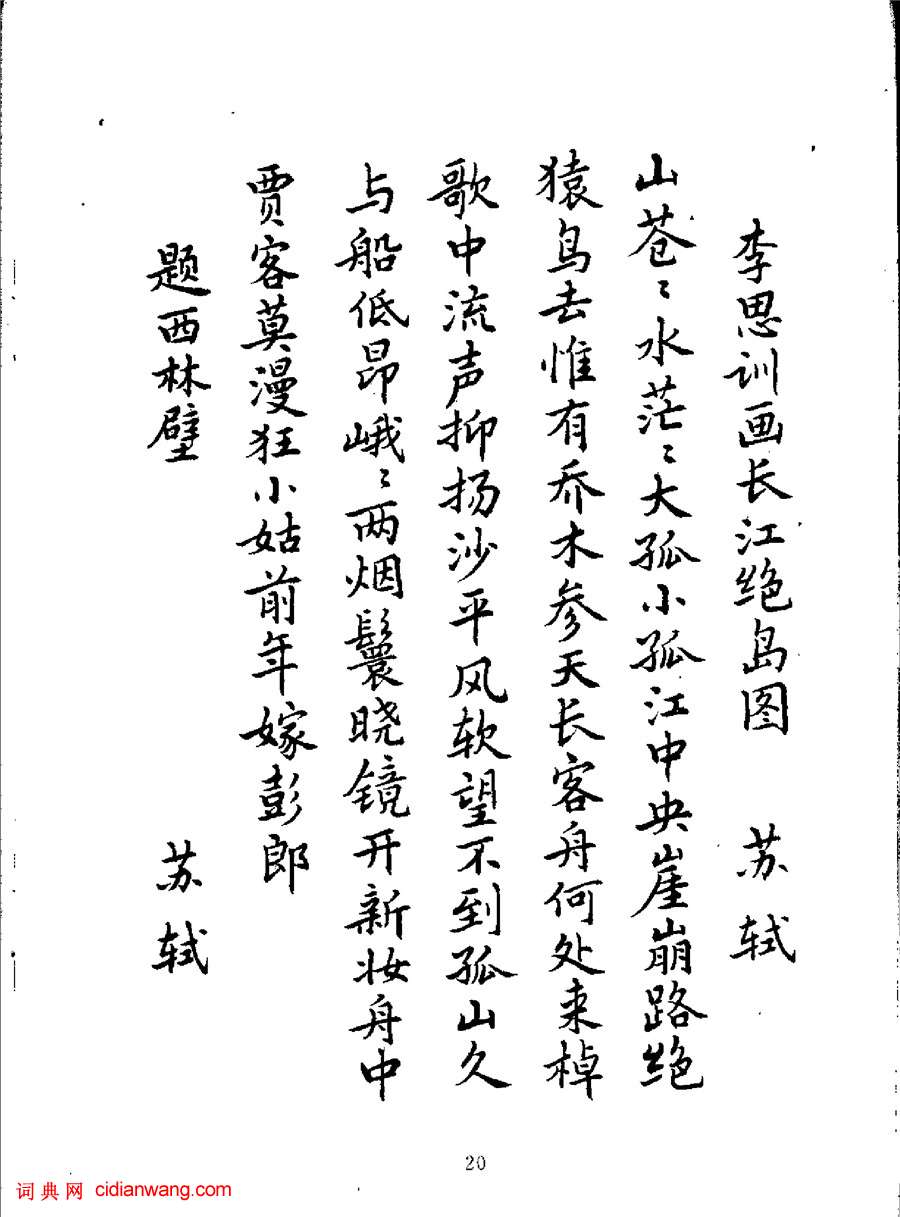 李思训画长江绝岛图 苏轼
山苍〻水茫〻大孤小孤江中央崖崩路绝
猿鸟去惟有乔木参天长客舟何处来棹
歌中流声抑扬沙平风软望不到孤山久
与船低昂峨〻两烟鬟晓镜开新妆舟中
贾客莫漫狂小姑前年嫁彭郎
题西林壁 苏轼
20
词典网 cidianwang.com